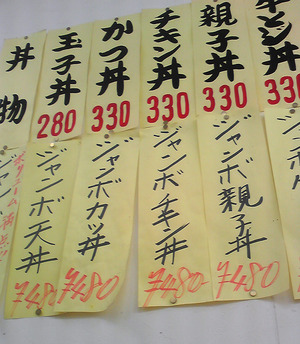 丼物
玉子丼
280
かつ丼
330
チキン丼
330
親子丼
330
ジャンボ天丼
¥480
ジャンボカツ丼
¥480
ジャンボチキン丼
¥480
ジャンボ親子丼
¥480